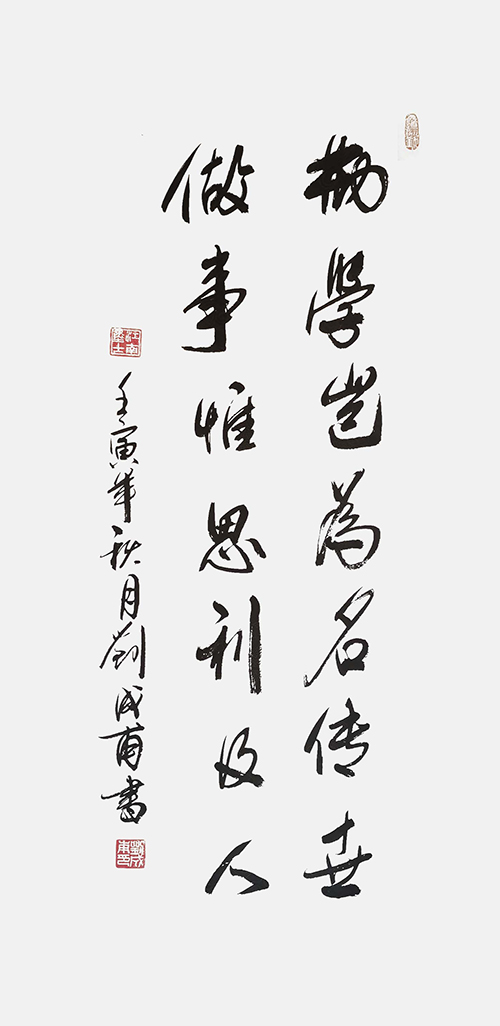 勤學岂為名传世
做事惟思利及人
壬寅年秋月劉成書